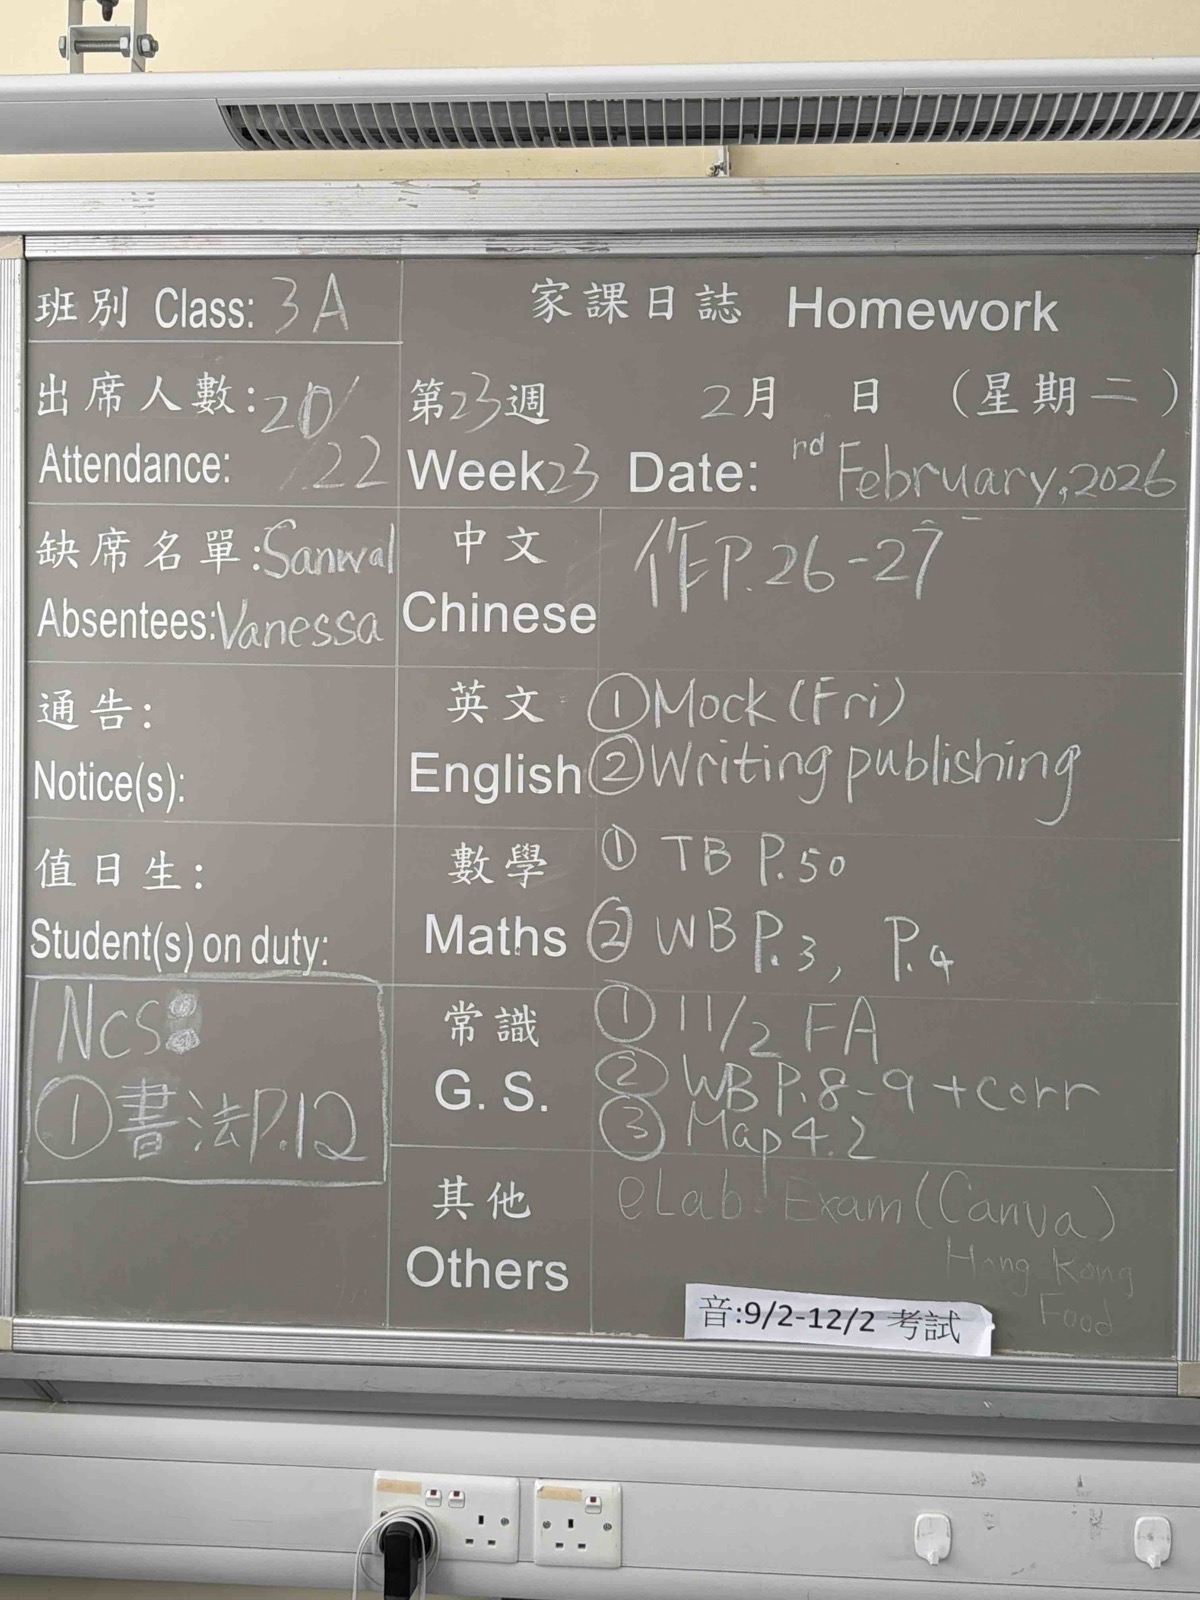 班別 Class: 3A
家課日誌 Homework
出席人數: 20/
Attendance: 22
第23週 2月 日 (星期二)
Week23 Date: rd February, 2026
缺席名單: Sanwal
Absentees: Vanessa
中文
Chinese
作P.26-27
通告:
Notice(s):
英文
English
① Mock (Fri)
② Writing publishing
值日生:
Student(s) on duty:
數學
Maths
① TB P.50
② WB P.3, P.4
NCS:
① 書法P.12
常識
G. S.
① 11/2 FA
② WB P.8-9 + corr
③ Map 4.2
其他
Others
eLab Exam (Canva)
Hong Kong
Food
音:9/2-12/2 考試